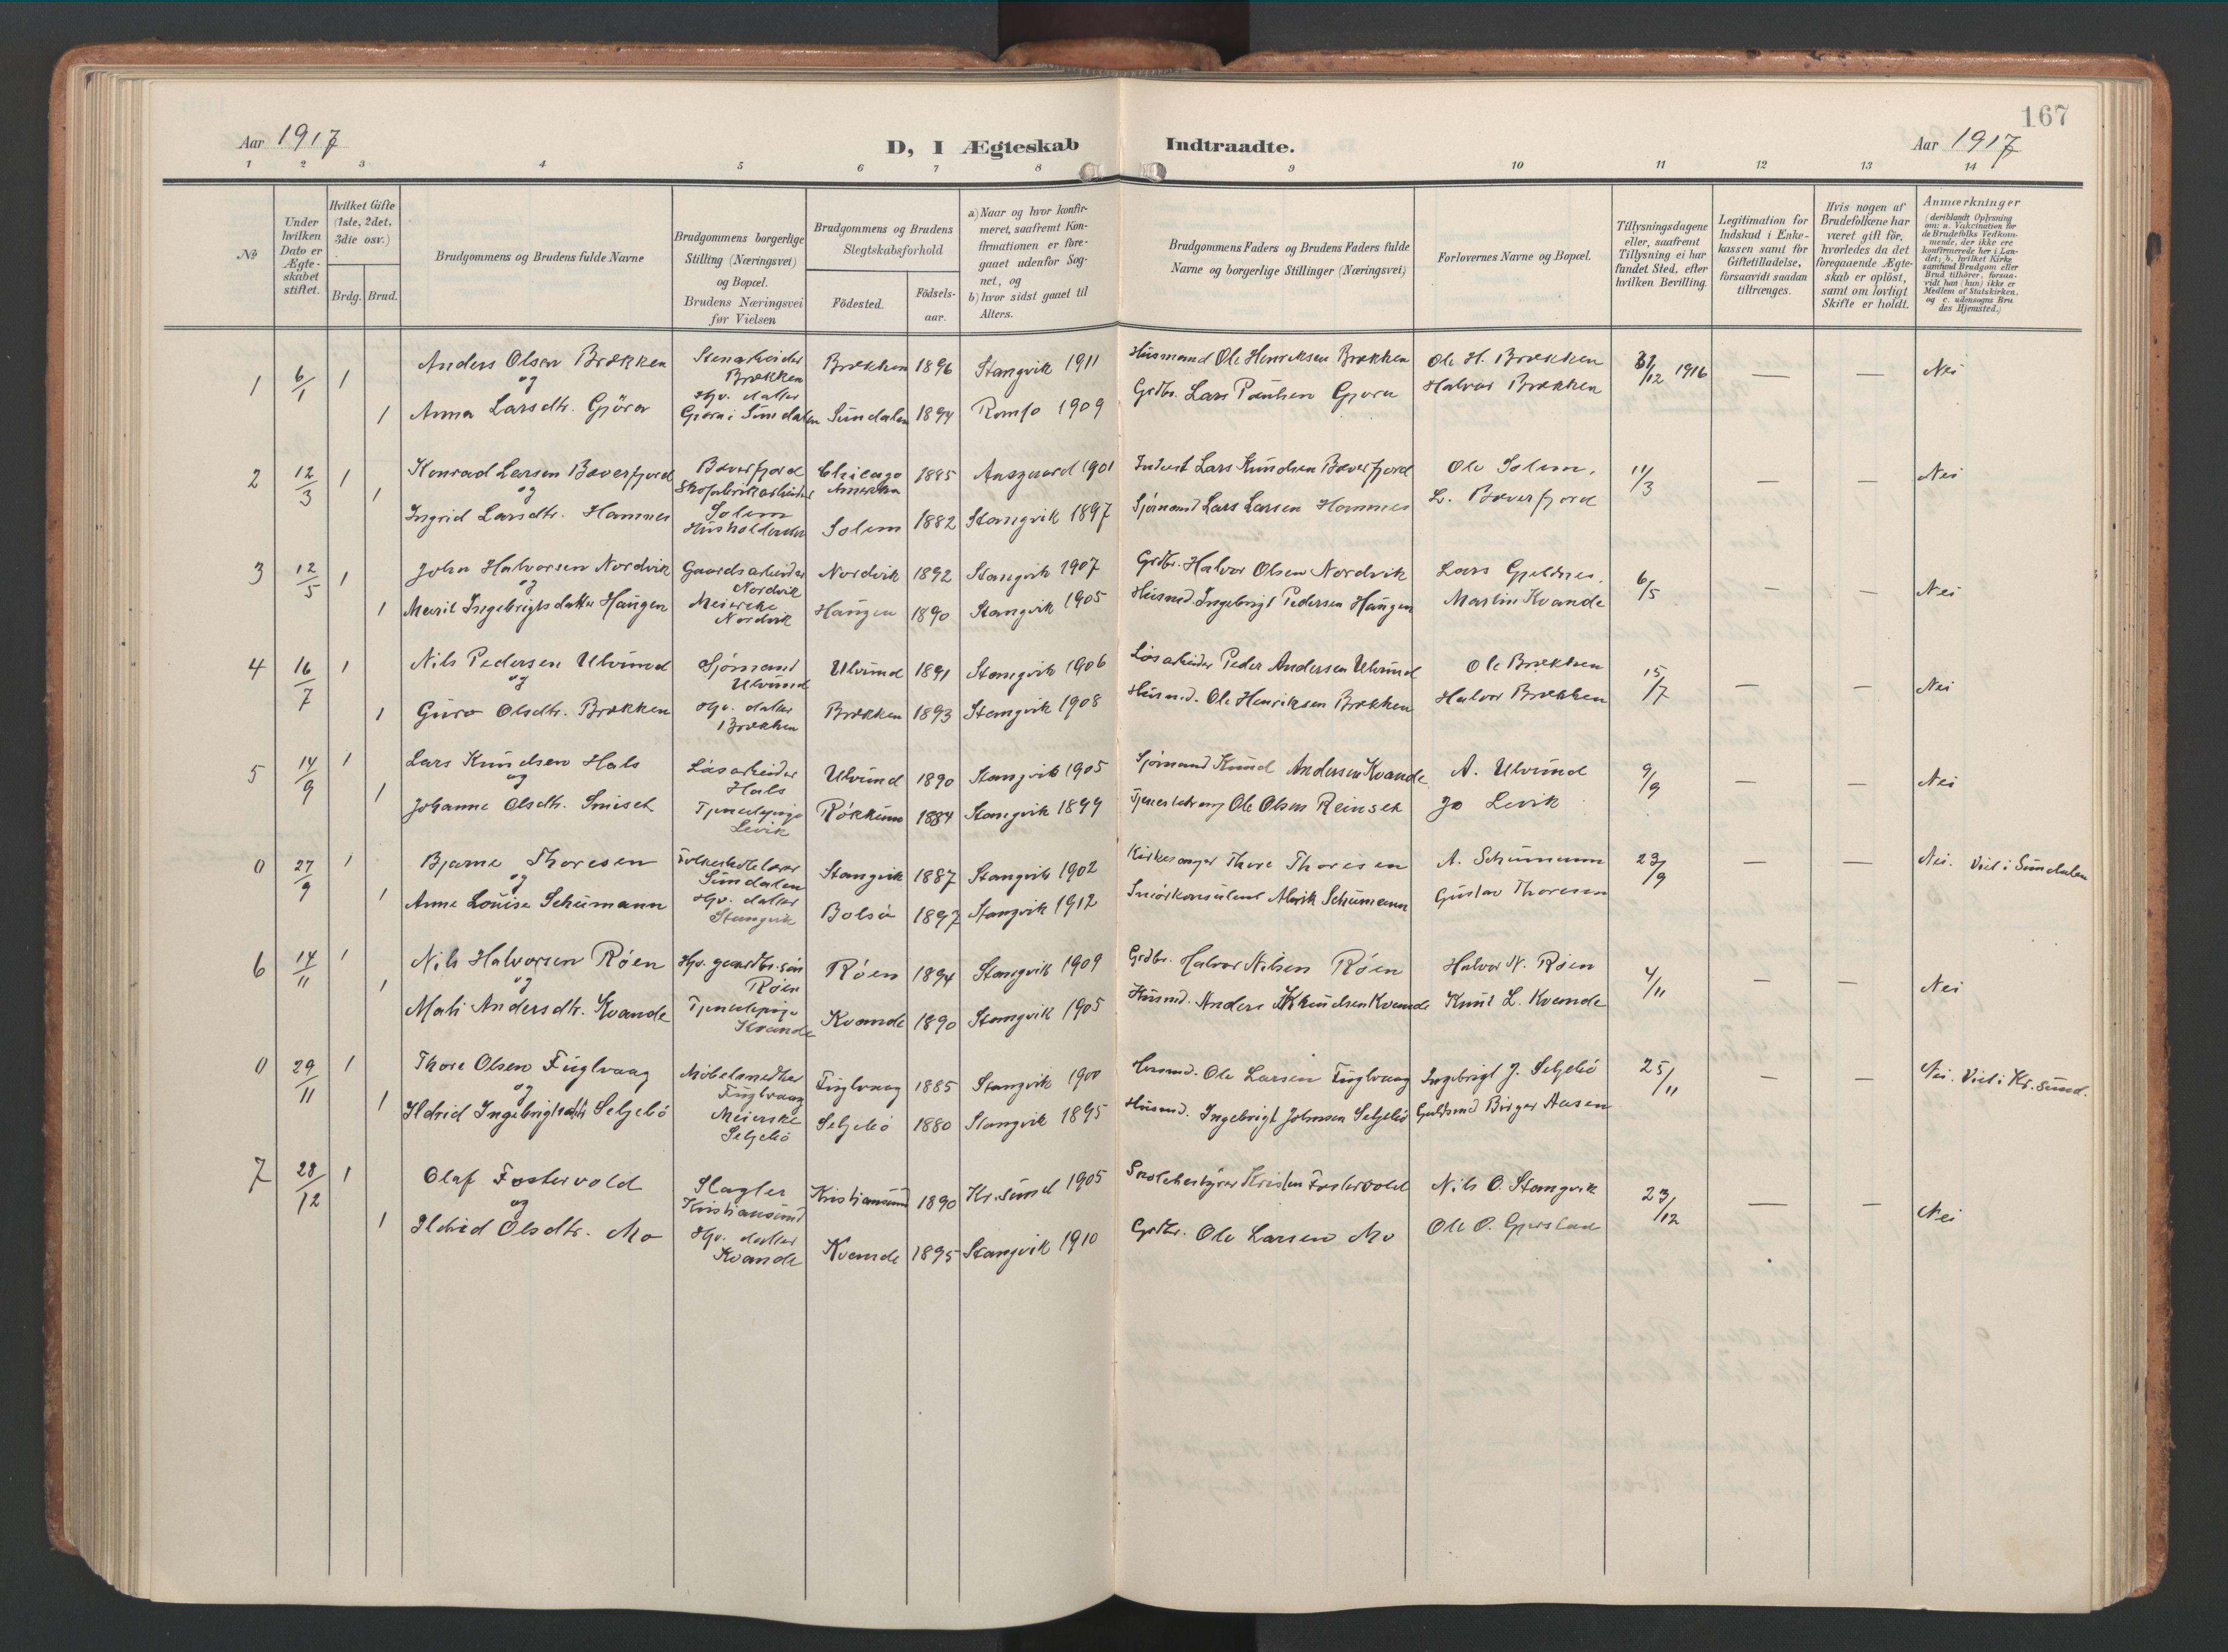 167
Aar 1917
D, I Ægteskab Indtraadte.
Aar 1917
1 2 3 4 5 6 7 8 9 10 11 12 13 14
No
Under hvilken Dato er Ægte-skabet stiftet.
Hvilket Gifte (1ste, 2det, 3die osv.)
Brdg. Brud.
Brudgommens og Brudens fulde Navne
Brudgommens borgerlige Stilling (Næringsvei) og Bopæl. Brudens Næringsvei før Vielsen
Brudgommens og Brudens Slegtskabsforhold
Födested. Födsels-aar.
a) Naar og hvor konfirmeret, saafremt Konfirmationen er foregaaet udenfor Sognet, og b) hvor sidst gaaet til Alters.
Brudgommens Faders og Brudens Faders fulde Navne og borgerlige Stillinger (Næringsvei)
Forlovernes Navne og Bopæl.
Tillysningsdagene eller, saafremt Tillysning ei har fundet Sted, efter hvilken Bevilling.
Legitimation for Indskud i Enkekassen samt for Giftetilladelse, forsaavidt saadan tiltrænges.
Hvis nogen af Brudefolkene har været gift før, hvorledes da det foregaaende Ægteskab er oplöst, samt om lovligt Skifte er holdt.
Anmærkninger (deriblandt Oplysning om: a. Vakcination for de Brudefolks Vedkommende, der ikke ere konfirmerede her i Landet; b. hvilket Kirkesamfund Brudgom eller Brud tilhörer, forsaavidt han (hun) ikke er Medlem af Statskirken, og c. udensogns Brudes Hjemsted.)
1 6/1 1 Anders Olsen Brækken Stenarbeider Brækken Brækken 1896 Stangvik 1911 Husmand Ole Henriksen Brækken Ole H. Brækken 31/12 1916 — — Nei
og
1 Anna Larsdtr. Gjöra Hjv. datter Gjöra i Sundalen Sundalen 1894 Romfo 1909 Grdbr. Lars Paulsen Gjøra Halvor Brækken
2 12/3 1 Konrad Larsen Bæverfjord Bæverfjord Skofabrikarbeider Chicago Amerika 1885 Aasgaard 1901 Inderst Lars Knudsen Bæverfjord Ole Solem. 11/3 — — Nei
og
1 Ingrid Larsdtr. Hamnes Solem Husholderske Solem 1882 Stangvik 1897 Sjømand Lars Larsen Hamnes L. Bæverfjord
3 12/5 1 John Halvorsen Nordvik Gaardsarbeider Nordvik Nordvik 1892 Stangvik 1907 Grdbr. Halvor Olsen Nordvik Lars Gjeldnes. 6/5 — — Nei
og
1 Marit Ingebrigtsdatter Haugen Meierske Nordvik Haugen 1890 Stangvik 1905 Husmd. Ingebrigt Pedersen Haugen Martin Kvande
4 16/7 1 Nils Pedersen Ulvund Sjømand Ulvund Ulvund 1891 Stangvik 1906 Løsarbeider Peder Andersen Ulvund Ole Brækken 15/7 — — Nei
og
1 Guro Olsdtr. Brækken Hjv. datter Brækken Brækken 1893 Stangvik 1908 Husmd. Ole Henriksen Brækken Halvor Brækken
5 14/9 1 Lars Knudsen Hals Løsarbeider Hals Ulvund 1890 Stangvik 1905 Sjømand Knud Andersen Kvande A. Ulvund 9/9 — — Nei
og
1 Johanne Olsdtr. Smiset Tjenestepige Levik Røkkum 1884 Stangvik 1899 Ole Olsen Reinset Jo Levik
0 27/9 1 Bjarne Thoresen Sundalen Stangvik 1887 Stangvik 1902 Kirkesanger Thore Thoresen A. Schumann 23/9 — — Nei. Viet i Sundalen
og
1 Anne Louise Schumann Hjv. datter Stangvik Bolsö 1897 Stangvik 1912 Smörkonsulent Alarik Schumann Gustav Thoresen
6 14/11 1 Nils Halvorsen Røen Hjv. gaardbr.sön Røen Røen 1894 Stangvik 1909 Grdbr. Halvor Nilsen Røen Halvor N. Røen 4/11 — — Nei
og
1 Mali Andersdtr. Kvande Tjenestepige Kvande Kvande 1890 Stangvik 1905 Husmd. Anders Knudsen Kvande Knut L. Kvande
0 29/11 1 Thore Olsen Fuglvaag Möbelsnedker Fuglvaag Fuglvaag 1885 Stangvik 1900 Husmd. Ole Larsen Fuglvaag Ingebrigt J. Seljebö 25/11 — — Nei. Viet i Kr.sund.
og
1 Ildrid Ingebrigtsdtr. Seljebö Meierske Seljebö Seljebö 1880 Stangvik 1895 Husmd. Ingebrigt Johnsen Seljebö Guldsmd Birger Aasen
7 28/12 1 Olaf Fostervold Slagter Kristiansund Kristiansund 1890 Kr.sund 1905 Skolebestyrer Kristen Fostervold Nils O. Stangvik 23/12 — — Nei
og
1 Ildrid Olsdtr. Mo Hjv. datter Kvande Kvande 1895 Stangvik 1910 Grdbr. Ole Larsen Mo Ole O. Gjerstad